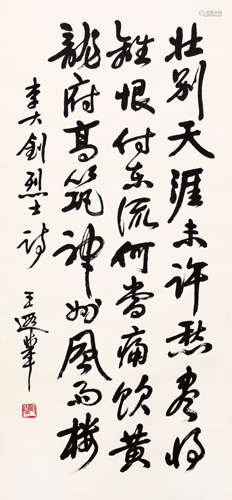 壮别天涯未许愁尽将
離恨付东流何當痛饮黄
龍府高筑神州風雨楼
李大釗烈士诗
王遐举